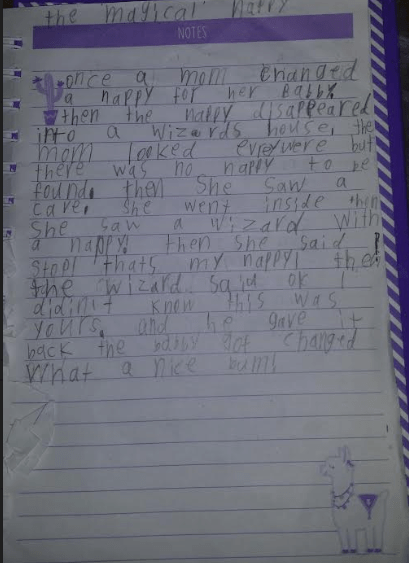 the magical nappy
NOTES
once a mom changed
a nappy for her baby
then the nappy disappeared
into a wizards house, the
mom looked everywere but
there was no nappy to be
found. then she saw a
cave. she went inside then
she saw a wizard with
a nappy. then she said
stop! thats my nappy! then
the wizard said ok I
didin't know this was
yours. and he gave it
back the baby got changed
What a nice bum!